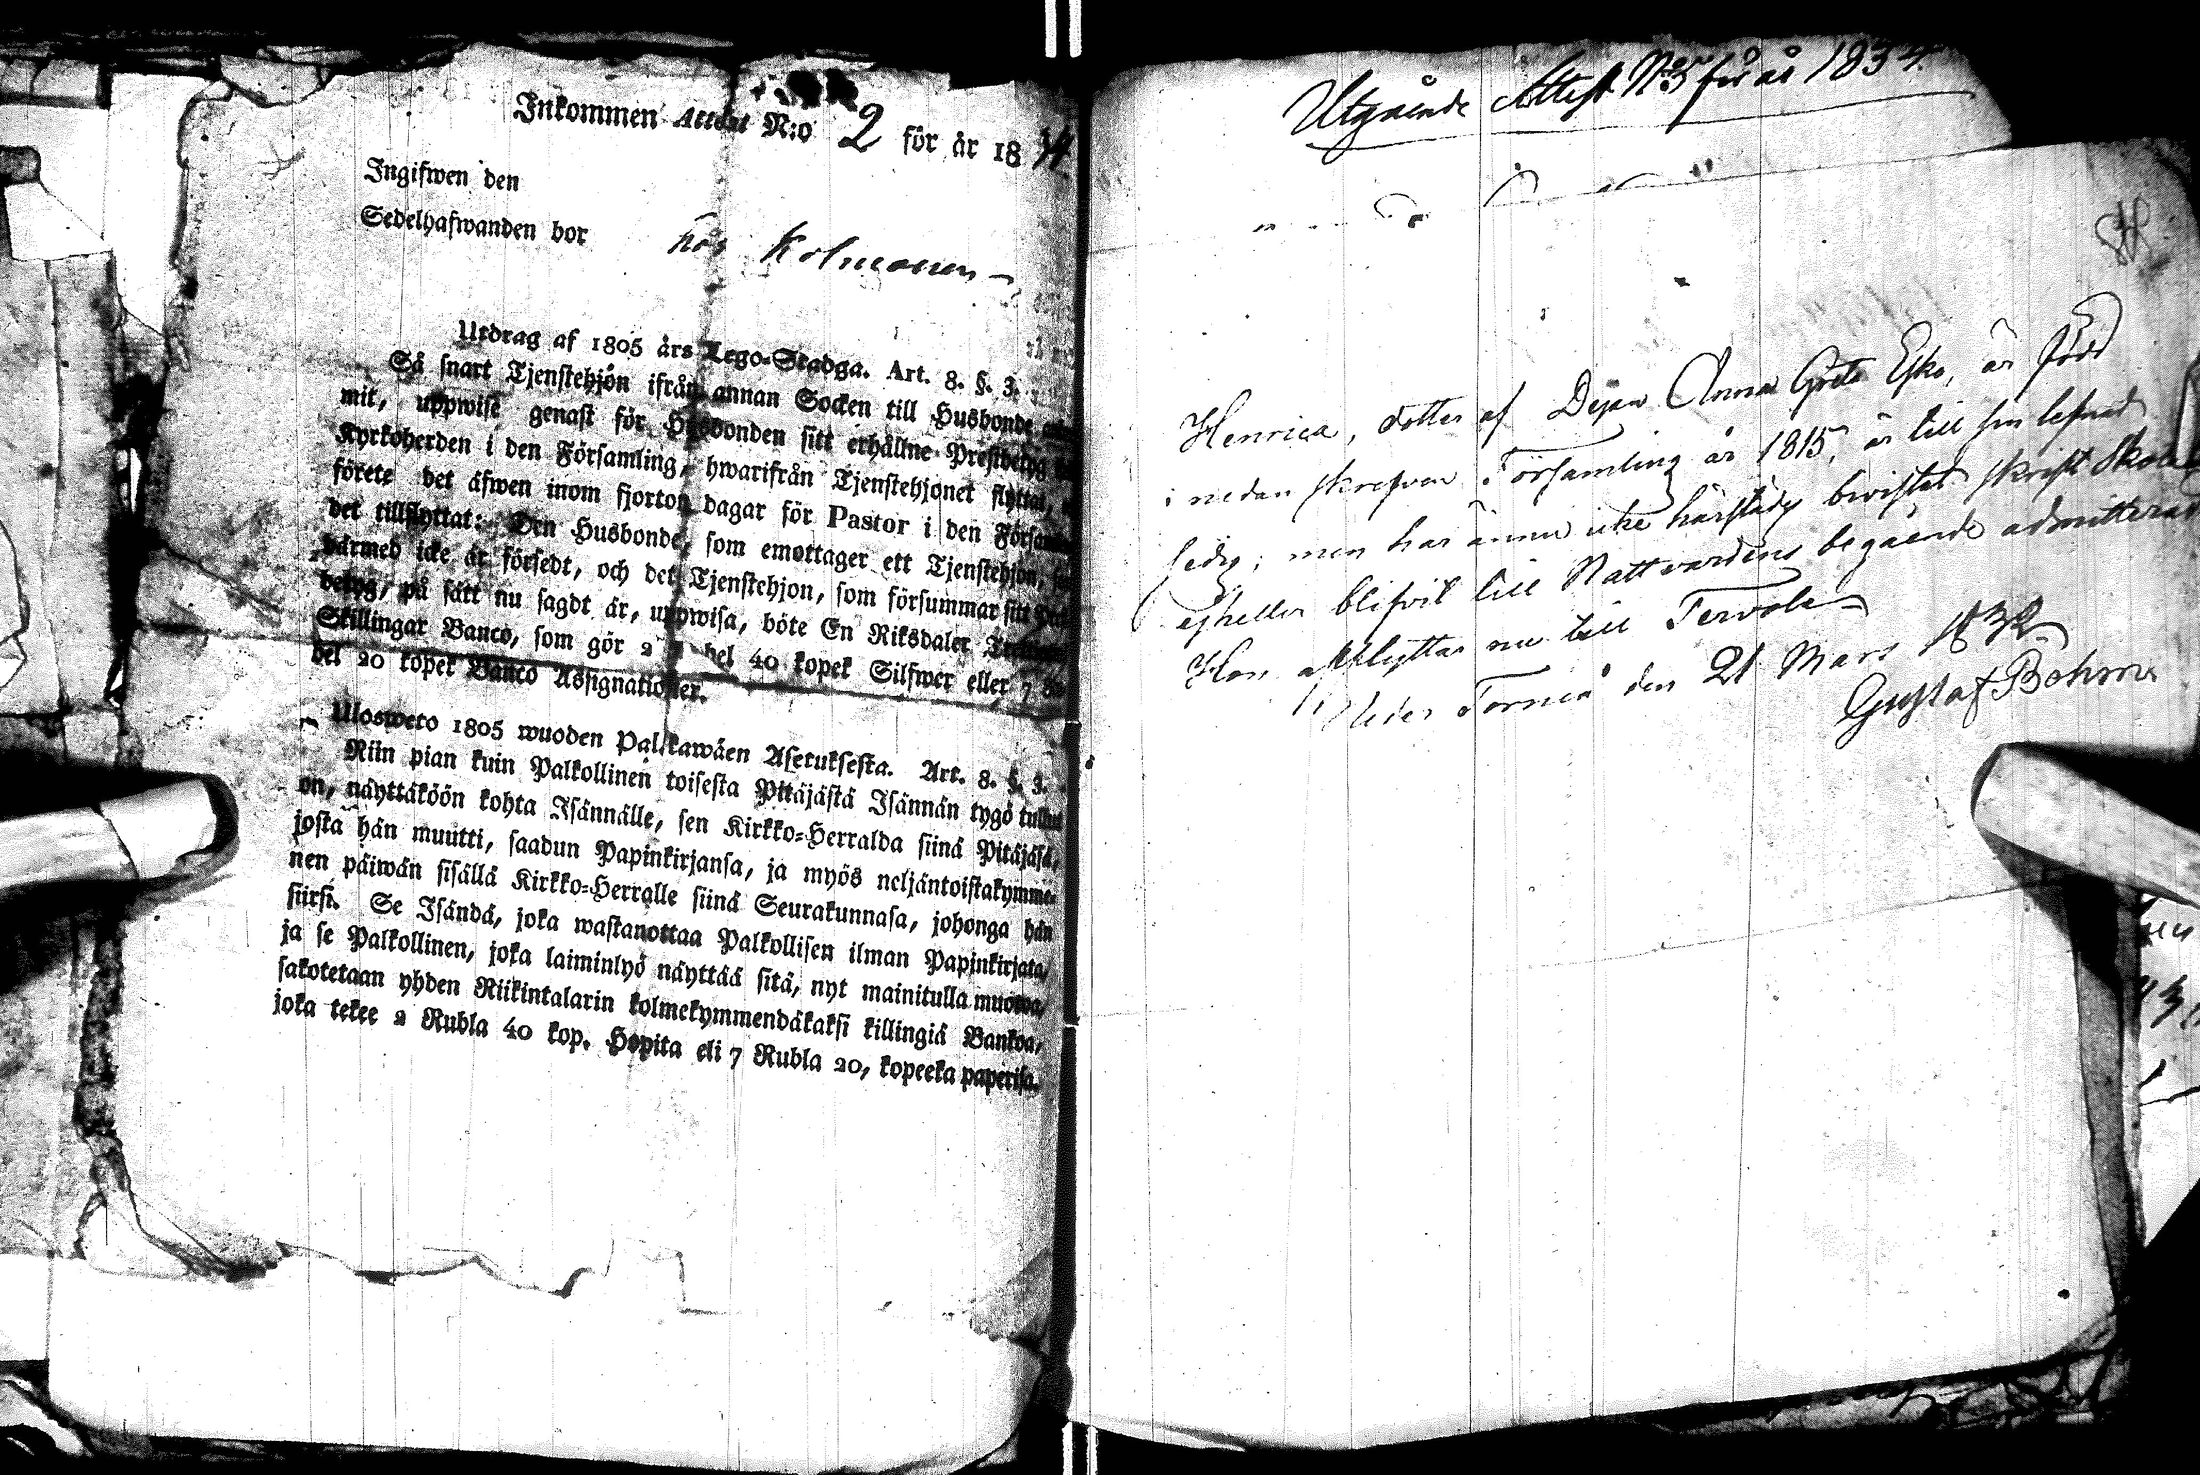 Inkommen Attest N:o 2 för år 18
Ingifwen den
Sedelhafwanden bor hos Kolmonen
Utdrag af 1805 års Lego-Stadga. Art. 8. §. 3.
Så snart Tjenstehjon ifrån annan Socken till Husbonde
mit, uppwise genast för Husbonden sitt erhållne Prestbetyg
Kyrkoherden i den Församling, hwarifrån Tjenstehjonet flyttat,
förete det äfwen inom fjorton dagar för Pastor i den Försam
det tillflyttat: Den Husbonde, som emottager ett Tjenstehjon,
därmed icke är försedt, och det Tjenstehjon, som försummar sitt
betyg, på sätt nu sagdt är, uppwisa, böte En Riksdaler
Skillingar Banco, som gör 2 bel 40 kopek Silfwer eller 7
bel 20 kopek Banco Assignationer.
Ulosweto 1805 wuoden Palkkawäen Asetuksesta. Art. 8. §. 3.
Niin pian kuin Palkollinen toisesta Pitäjästä Isännän tygö tullut
on, näyttäköön kohta Isännälle, sen Kirkko-Herralda siinä Pitäjäsä,
josta hän muutti, saadun Papinkirjansa, ja myös neljäntoistakymme-
nen päiwän sisällä Kirkko-Herralle siinä Seurakunnasa, johonga hän
siirsi. Se Isändä, joka wastanottaa Palkollisen ilman Papinkirjata,
ja se Palkollinen, joka laiminlyö näyttää sitä, nyt mainitulla muotoa,
sakotetaan yhden Riikintalarin kolmekymmendäkaksi killingiä Bankoa,
joka tekee 2 Rubla 40 kop. Hopita eli 7 Rubla 20, kopeeka paperisa.
Utgående Attest No 5 för år 1834
Henrica, dotter af Dejan Anna Greta Esko, är född
i nedan skrefven Församling år 1815, är till sin lefnad
ledig; men har ännu icke härstädes bevistat skriftskola
ejheller blifvit till Nattvardens begående admitterad
Hon afflyttar nu till Tervola
Neder Torneå den 21 Mars 1832
Gustaf Bohm